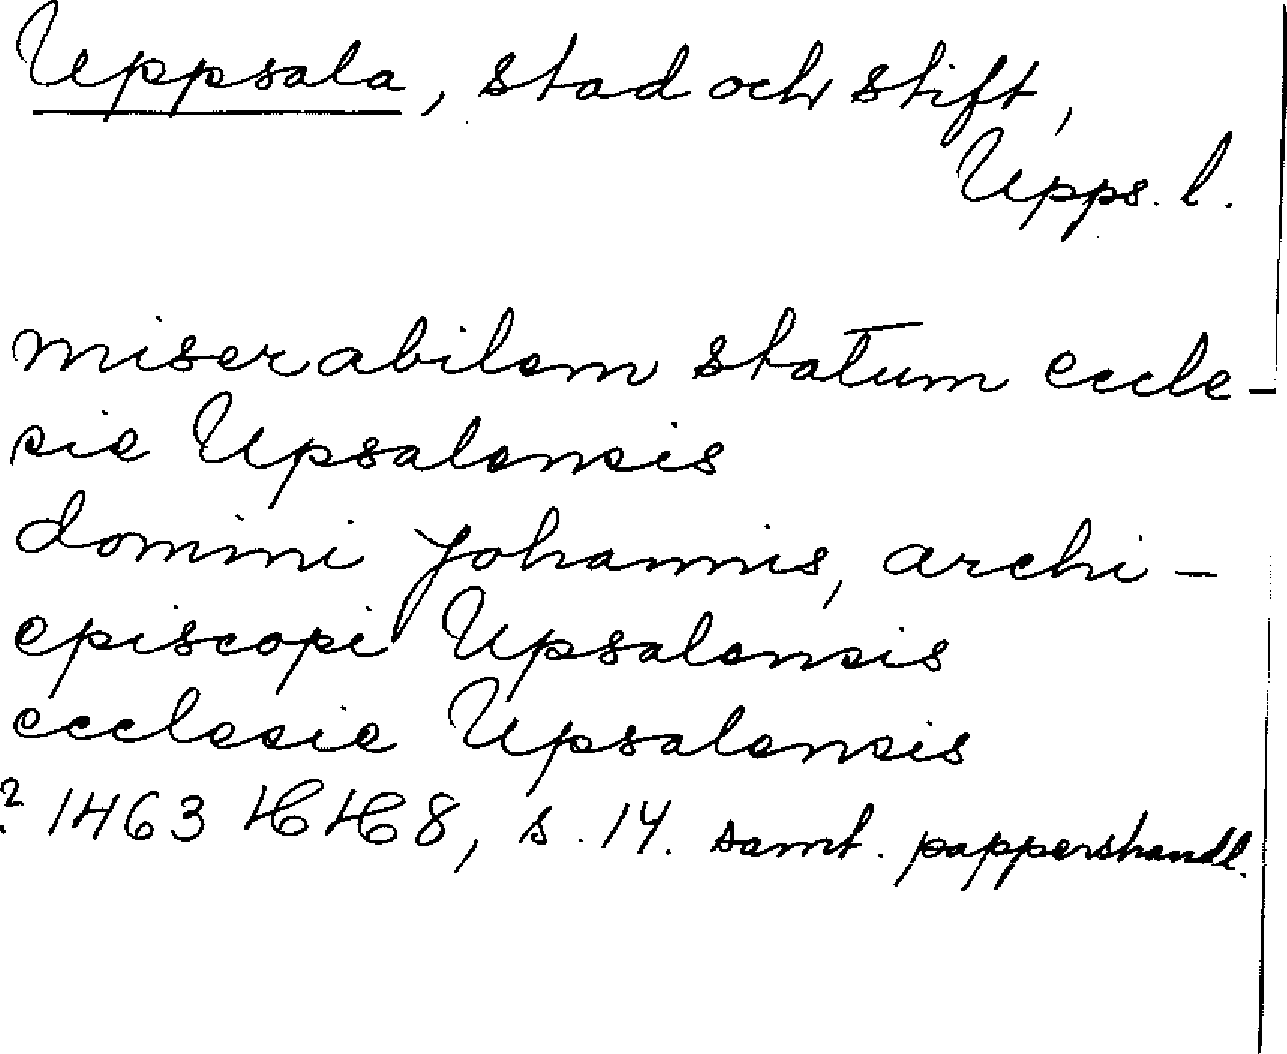 Uppsala, stad och stift,
Upps. l.
miserabilem statum eccle-
sie Upsalensis
domini Johannis, archi-
episcopi Upsalensis
ecclesie Upsalensis
? 1463 HH 8, s. 14. samt. pappershandl.